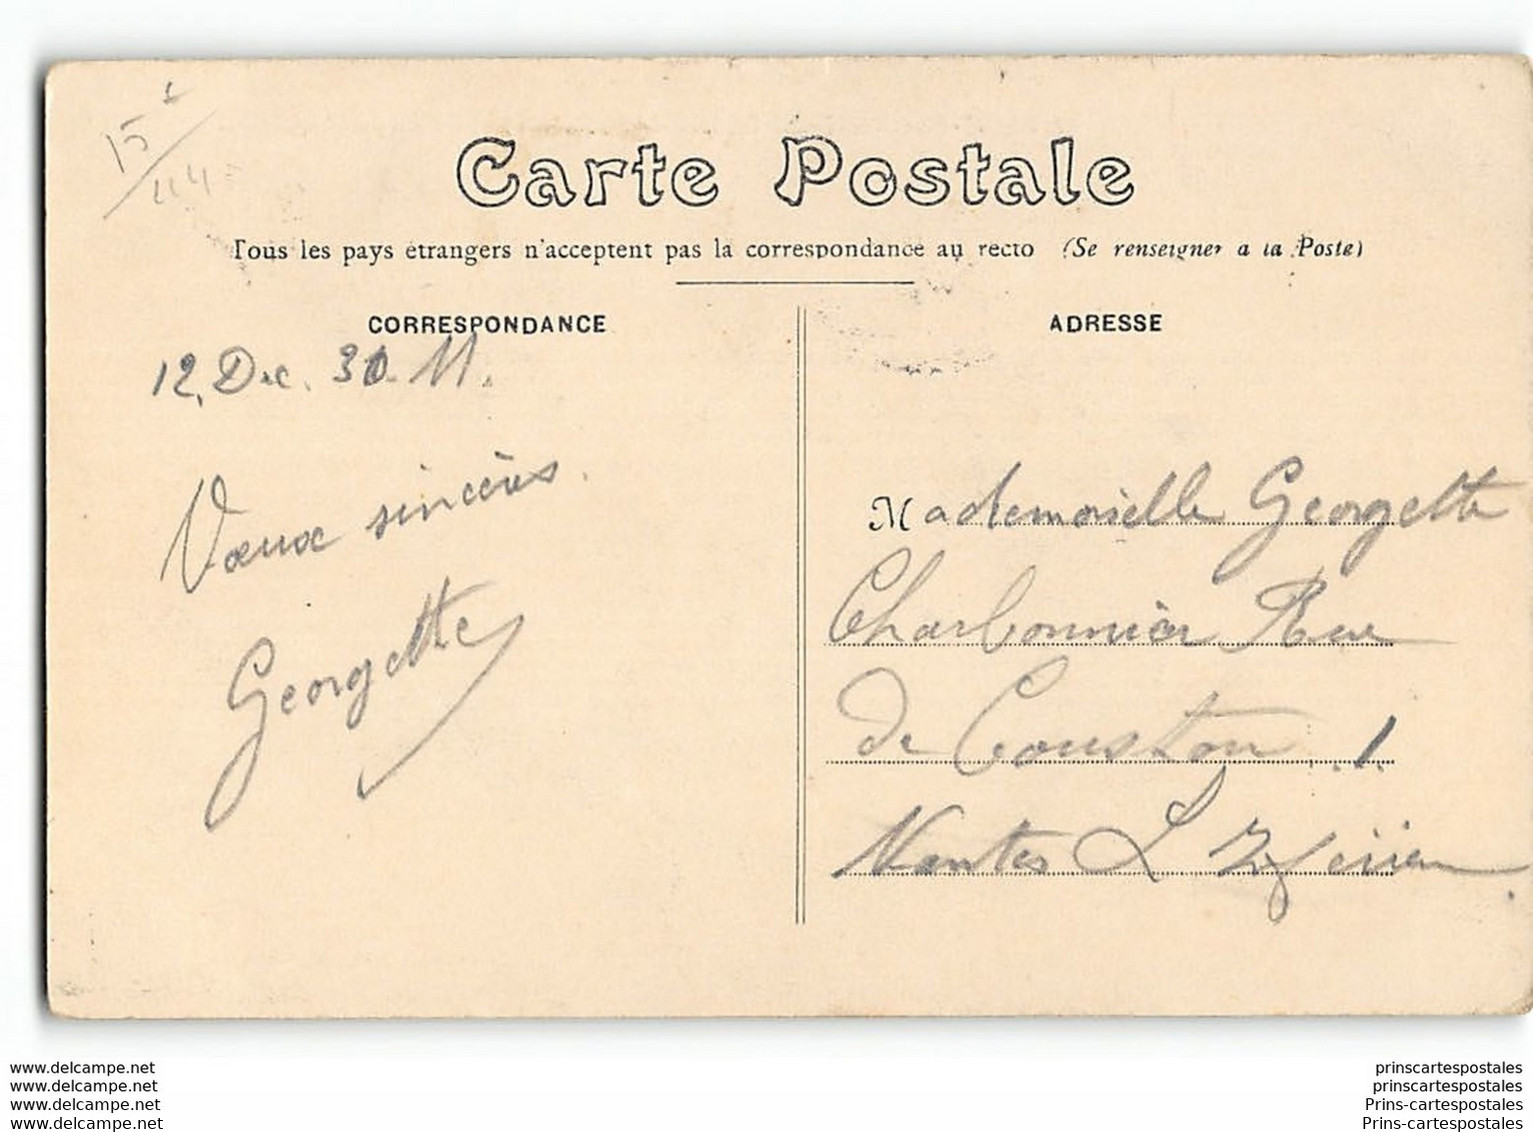 15
44
Carte Postale
Tous les pays étrangers n'acceptent pas la correspondance au recto (Se renseigner à la Poste)
CORRESPONDANCE
ADRESSE
12, Dec. 30. 11.
Vœux sincères.
Georgette
Mademoiselle Georgette
Charbonnier Rue
de Couston 1.
Nantes L
www.delcampe.net
www.delcampe.net
www.delcampe.net
www.delcampe.net
prinscartespostales
prinscartespostales
Prins-cartespostales
Prins-cartespostales